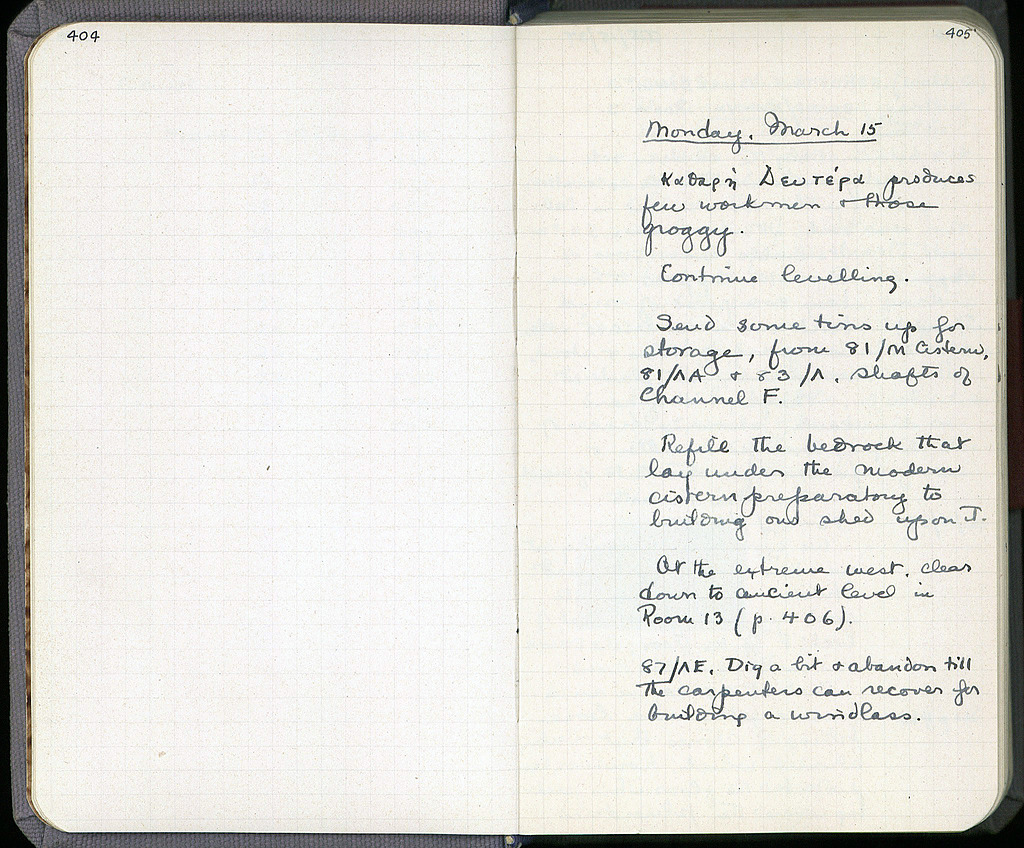 404
405
Monday, March 15
Καθαρὴ Δευτέρα produces
few workmen & those
groggy.
Continue levelling.
Send some tins up for
storage, from 81/Μ Cistern,
81/ΛΑ & 83/Λ, shafts of
Channel F.
Refill the bedrock that
lay under the modern
cistern preparatory to
building our shed upon it.
At the extreme west, clear
down to ancient level in
Room 13 (p. 406).
87/ΛΕ. Dig a bit & abandon till
the carpenters can recover for
building a windlass.